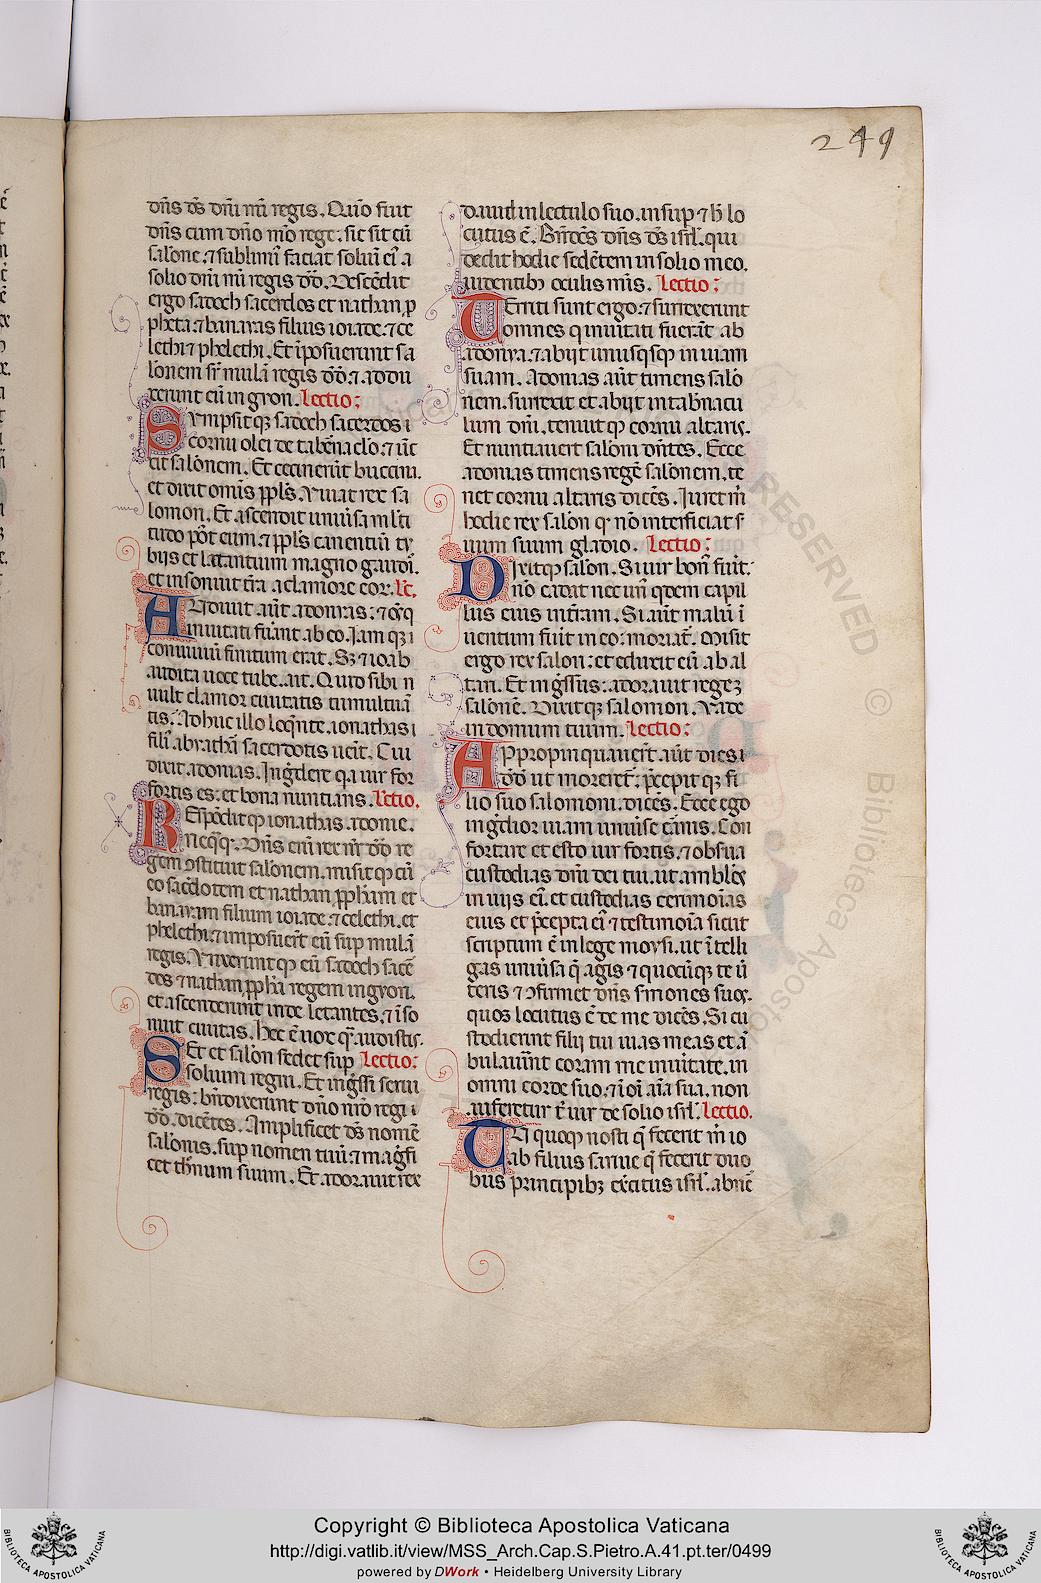 249
dn̄s ds̄ dn̄i mi regis. Quō fuit
dn̄s cum dn̄o mō rege: sic sit cū
salōne. ⁊ sublimiꝰ faciat soliū eiꝰ a
solio dn̄i mī regis dd̄. Descēdit
ergo sadoch sacerdos et nathan ꝓ
pheta: ⁊ banaias filius ioiade: ⁊ ce
lethi ⁊ phelethi. Et īposuerunt sa
lōnem sr̄ mulā regis dd̄: ⁊ addu
xerunt eū in gyon. Lectio:
Sympsitqꝫ sadoch sacerdos i
cornu olei de tab̄naclō: ⁊ ūx
cit salōnem. Et cecinerūt buccina.
et dixit omīs ppl̄s. Viuat rex sa
lomon. Et ascendit uniūsa ml̄ti
tudo pōt eum. ⁊ ppl̄s canentiū ty
biis et letantium magno gaudiō.
et insonuit tr̄a a clamore eor: lc̄.
Audiuit aūt adonias: ⁊ oēs
inuitati fuāant ab eo. Iam qꝫ i
conuiuiū finitum erat. Sꝫ ⁊ ioab
audita uoce tube. ait. Quid sibi n
uult clamor ciuitatis tumultuā
tis. Adhuc illo loq̄nte. ionathas i
filiꝰ abyathā sacerdotis uēit. Cui
dixit adonias. Ingr̄dere qa uir for
fortis es: et bona nuntians. lc̄tio.
Respōditqꝫ ionathas. adonie.
Neq̄q̄. Dn̄s em̄ rex nr̄ dd̄ re
gem ↄstituit salōnem. misitqꝫ cū
eo sac̄dotem et nathan pph̄am et
banaiam filium ioiade: ⁊ celethi. et
phelethi: ⁊ imposuert̄ eū sup mulā
regis. Vnxeruntqꝫ eū sadoch sac̄e
dos ⁊ nathan pph̄a regem in gyon.
et ascenderunt inde letantes. ⁊ īso
nuit ciuitas. Hec ē uox q̄ audistis.
Set et salōn sedet sup Lectio:
solium regni. Et ingr̄ssi serui
regis: bn̄dixerunt dn̄o nrō regi i
dd̄. dicētes. Amplificet ds̄ nomē
salōnis. sup nomen tuū: ⁊ magn̄fi
cet thr̄num suum. Et adorauit rex
dauid in lectulo suo. insup ⁊ h̄ lo
cutus ē. Bn̄dc̄s dn̄s ds̄ isrl̄. qui
dedit hodie sedētem in solio meo.
uidentibꝰ oculis mīs. Lectio:
Territi sunt ergo: ⁊ surrexerunt
omnes q inuitati fuerāt ab
adonya. ⁊ abiit unusq̄sqꝫ in uiam
suam. Adonias aūt timens salō
nem. surrexit et abiit in tab̄nacu
lum dn̄i. tenuitqꝫ cornu altaris.
Et nuntiauert̄ salōni dn̄tes. Ecce
adonias timens regē salōnem. te
net cornu altaris dicēs. Iuret m̄
hodie rex salōn qꝰ nō interficiat s̄
uum suum gladio. Lectio:
Dixitqꝫ salōn. Si uir bonꝰ fuit.
nō cadat nec unꝰ qdem capil
lus eius in tr̄am. Si aūt malū i
uentum fuit in eo: moriat̄. Misit
ergo rex salon: et eduxit eū ab al
tari. Et ingr̄ssus: adorauit regeꝫ
salōnē. Dixitqꝫ salomon. Vade
in domum tuum. Lectio:
Appropinquauert̄. aūt dies i
dd̄ ut moreret̄. p̄cepitqꝫ fi
lio suo salomoni: dicēs. Ecce ego
ingr̄dior uiam uniūse c̄nis. Con
fortare et esto uir fortis. ⁊ obsua
custodias dn̄i dei tui. ut ambules
in uiis eiꝰ. et custodias cerimoīas
eius et p̄cepta eiꝰ ⁊ testimoīa sicut
scriptum ē in lege moysi. ut ītelli
gas uniūsa q̄ agis ⁊ quocūqꝫ te ū
teris ⁊ ↄfirmet dn̄s smones suos.
quos locutus ē de me dicēs. Si cu
stodierint filii tui uias meas et ā
bulauūnt coram me in uitate. in
omni corde suo: ⁊ ī oī aīa sua. non
auferetur t̄ uir de solio isrl̄. Lectio.
Tu quoqꝫ nosti q̄ fecerit m̄ io
ab filius saruie q̄ fecerit duo
bus principibꝫ ex̄citus isrl̄. abnē
RESERVED © Biblioteca Apostolica
BIBLIOTECA APOSTOLICA VATICANA
Copyright © Biblioteca Apostolica Vaticana
http://digi.vatlib.it/view/MSS_Arch.Cap.S.Pietro.A.41.pt.ter/0499
powered by DWork • Heidelberg University Library
BIBLIOTECA APOSTOLICA VATICANA